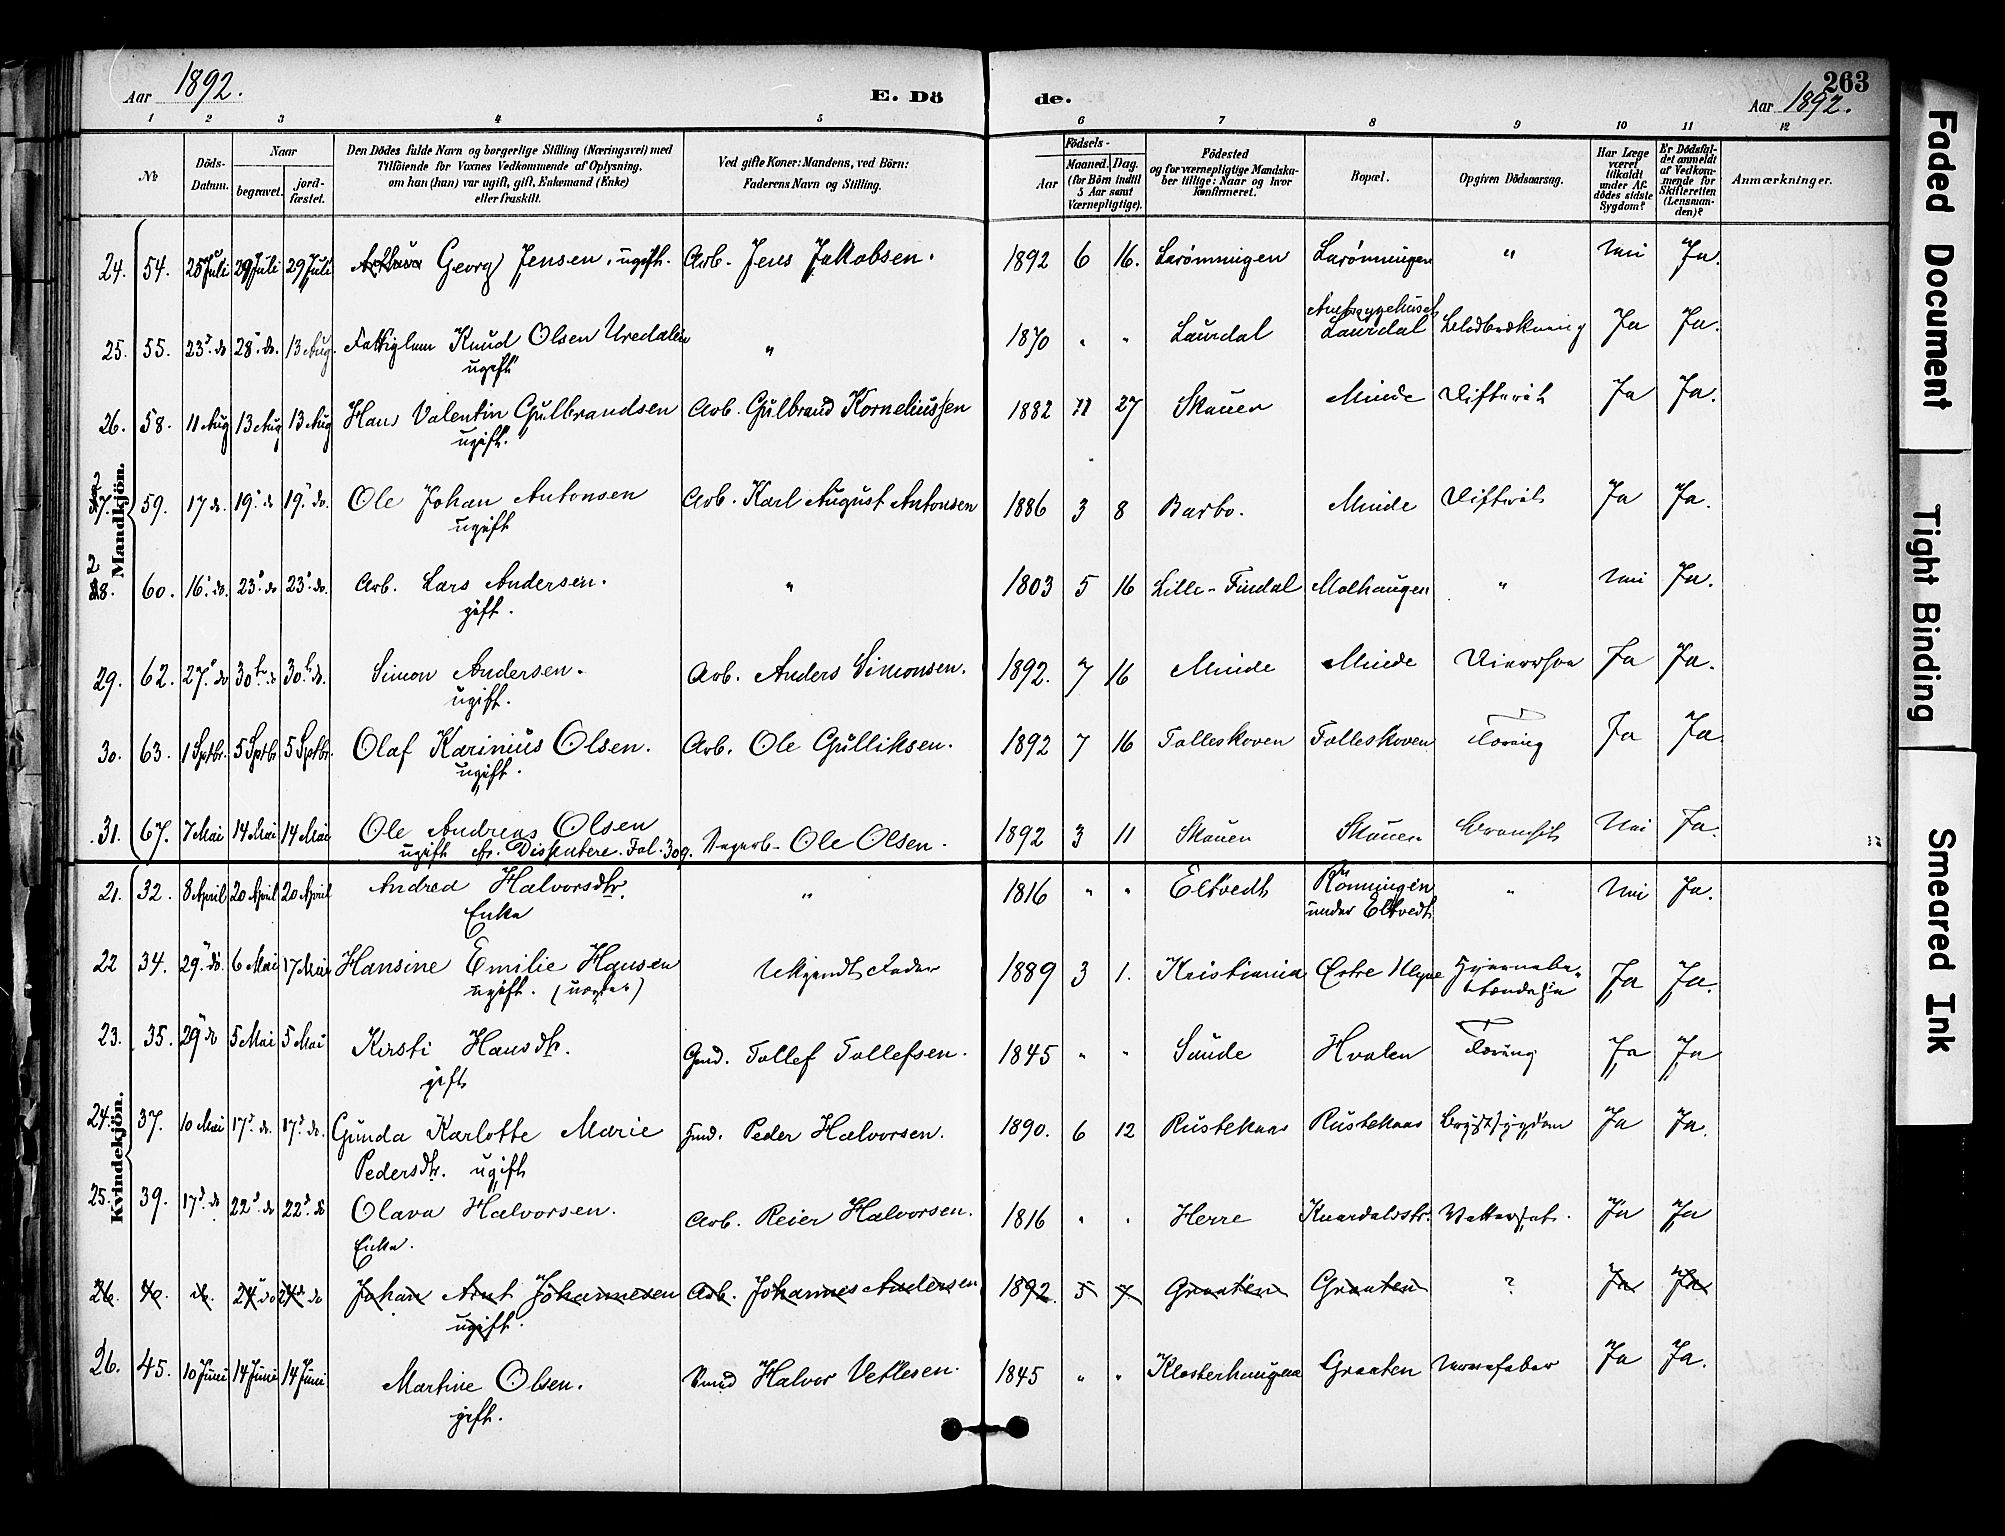 263
Aar 1892.
E. Dö
de.
Aar 1892.
1 2 3 4 5 6 7 8 9 10 11 12
No
Döds-
Datum.
Naar
begravet.
jord-
fæstet.
Den Dödes fulde Navn og borgerlige Stilling (Næringsvei) med
Tilföiende for Voxnes Vedkommende af Oplysning,
om han (hun) var ugift, gift, Enkemand (Enke)
eller fraskilt.
Ved gifte Koner: Mandens, ved Börn:
Faderens Navn og Stilling.
Födsels-
Aar
Maaned. Dag.
(for Börn indtil
5 Aar samt
Værnepligtige).
Födested
og for værnepligtige Mandska-
ber tillige: Naar og hvor
konfirmeret.
Bopæl.
Opgiven Dödsaarsag.
Har Læge
været
tilkaldt
under Af-
dödes sidste
Sygdom?
Er Dödsfal-
det anmeldt
af Vedkom-
mende for
Skifteretten
(Lensman-
den)?
Anmærkninger.
Mandkjön.
24. 54. 25 Juli 29 Juli 29 Juli Georg Jensen, ugift. Arb. Jens Jakobsen. 1892 6 16. Larönningen Larönningen " Nei Ja.
25. 55. 23. do 28. do. 13 Aug. Fattiglem Knud Olsen Uredalen " 1870 " " Laurdal Laurdal Blodbrækning Ja Ja.
ugift
26. 58. 11 Aug 13 Aug 13 Aug Hans Valentin Gulbrandsen Arb. Gulbrand Korneliussen 1882 11 27 Skauen Minde Difterit Ja Ja.
ugift.
27. 59. 17 do. 19. do 19. do. Ole Johan Antonsen Arb. Karl August Antonsen 1886 3 8 Barbo. Minde Difterit Ja Ja.
ugift
28. 60. 16. do. 23. do 23. do. Arb. Lars Andersen. " 1803 5 16 Lille-Findal Molhaugen " Nei Ja.
gift.
29. 62. 27. do 30. do 30. do. Simon Andersen. Arb. Anders Simonsen. 1892. 7 16 Minde Minde Diarrhoe Ja Ja.
ugift.
30. 63. 1 Septbr. 5 Septbr 5 Septbr. Olaf Karinius Olsen. Arb. Ole Gulliksen. 1892 7 16 Tolleskoven Tolleskoven Tæring Ja Ja.
ugift.
31. 67. 7 Mai 14 Mai 14 Mai Ole Andreas Olsen Ole Olsen. 1892 3 11 Skauen Skauen Nei Ja.
ugift Fol. 309.
Kvindekjön.
21. 32. 8 April 20 April 20 April Andrea Halvorsdtr. " 1816 " " Eltvedt Rönningen " Nei Ja.
Enke under Eltvedt
22 34. 29. do. 6 Mai 17 Mai Hansine Emilie Hansen Ukjendt Fader 1889 3 1. Kristiania Hjernebe- Ja Ja.
ugift. (uægte) tændelse
23. 35. 29 do 5 Mai 5 Mai Kirsti Hansdtr. Gmd. Tollef Tollefsen. 1845 " " Sunde Hvalen Tæring Ja Ja
gift
24. 37. 10 Mai 17. do. 17. do. Gunda Karlotte Marie Hmd. Peder Halvorsen. 1890. 6 12 Rustekaas Rustekaas Brystsygdom Ja Ja.
Pedersdtr. ugift
25. 39. 17. do 22. do 22. do Olava Halvorsen. Arb. Reier Halvorsen. 1816 " " Herre Knardalsstr. Vattersot. Ja Ja
Enke.
26. 40. do. 24 do 24 do Johan Arnt Johannesen Arb. Johannes Andersen 1892. 5 7 Graaten Graaten ? Ja Ja
ugift.
26. 45. 10 Juni 14 Juni 14 Juni Martine Olsen. Halvor Vetlesen. 1845 " " Klosterhaugen Graaten Ja Ja.
gift.
Faded Document
Tight Binding
Smeared Ink